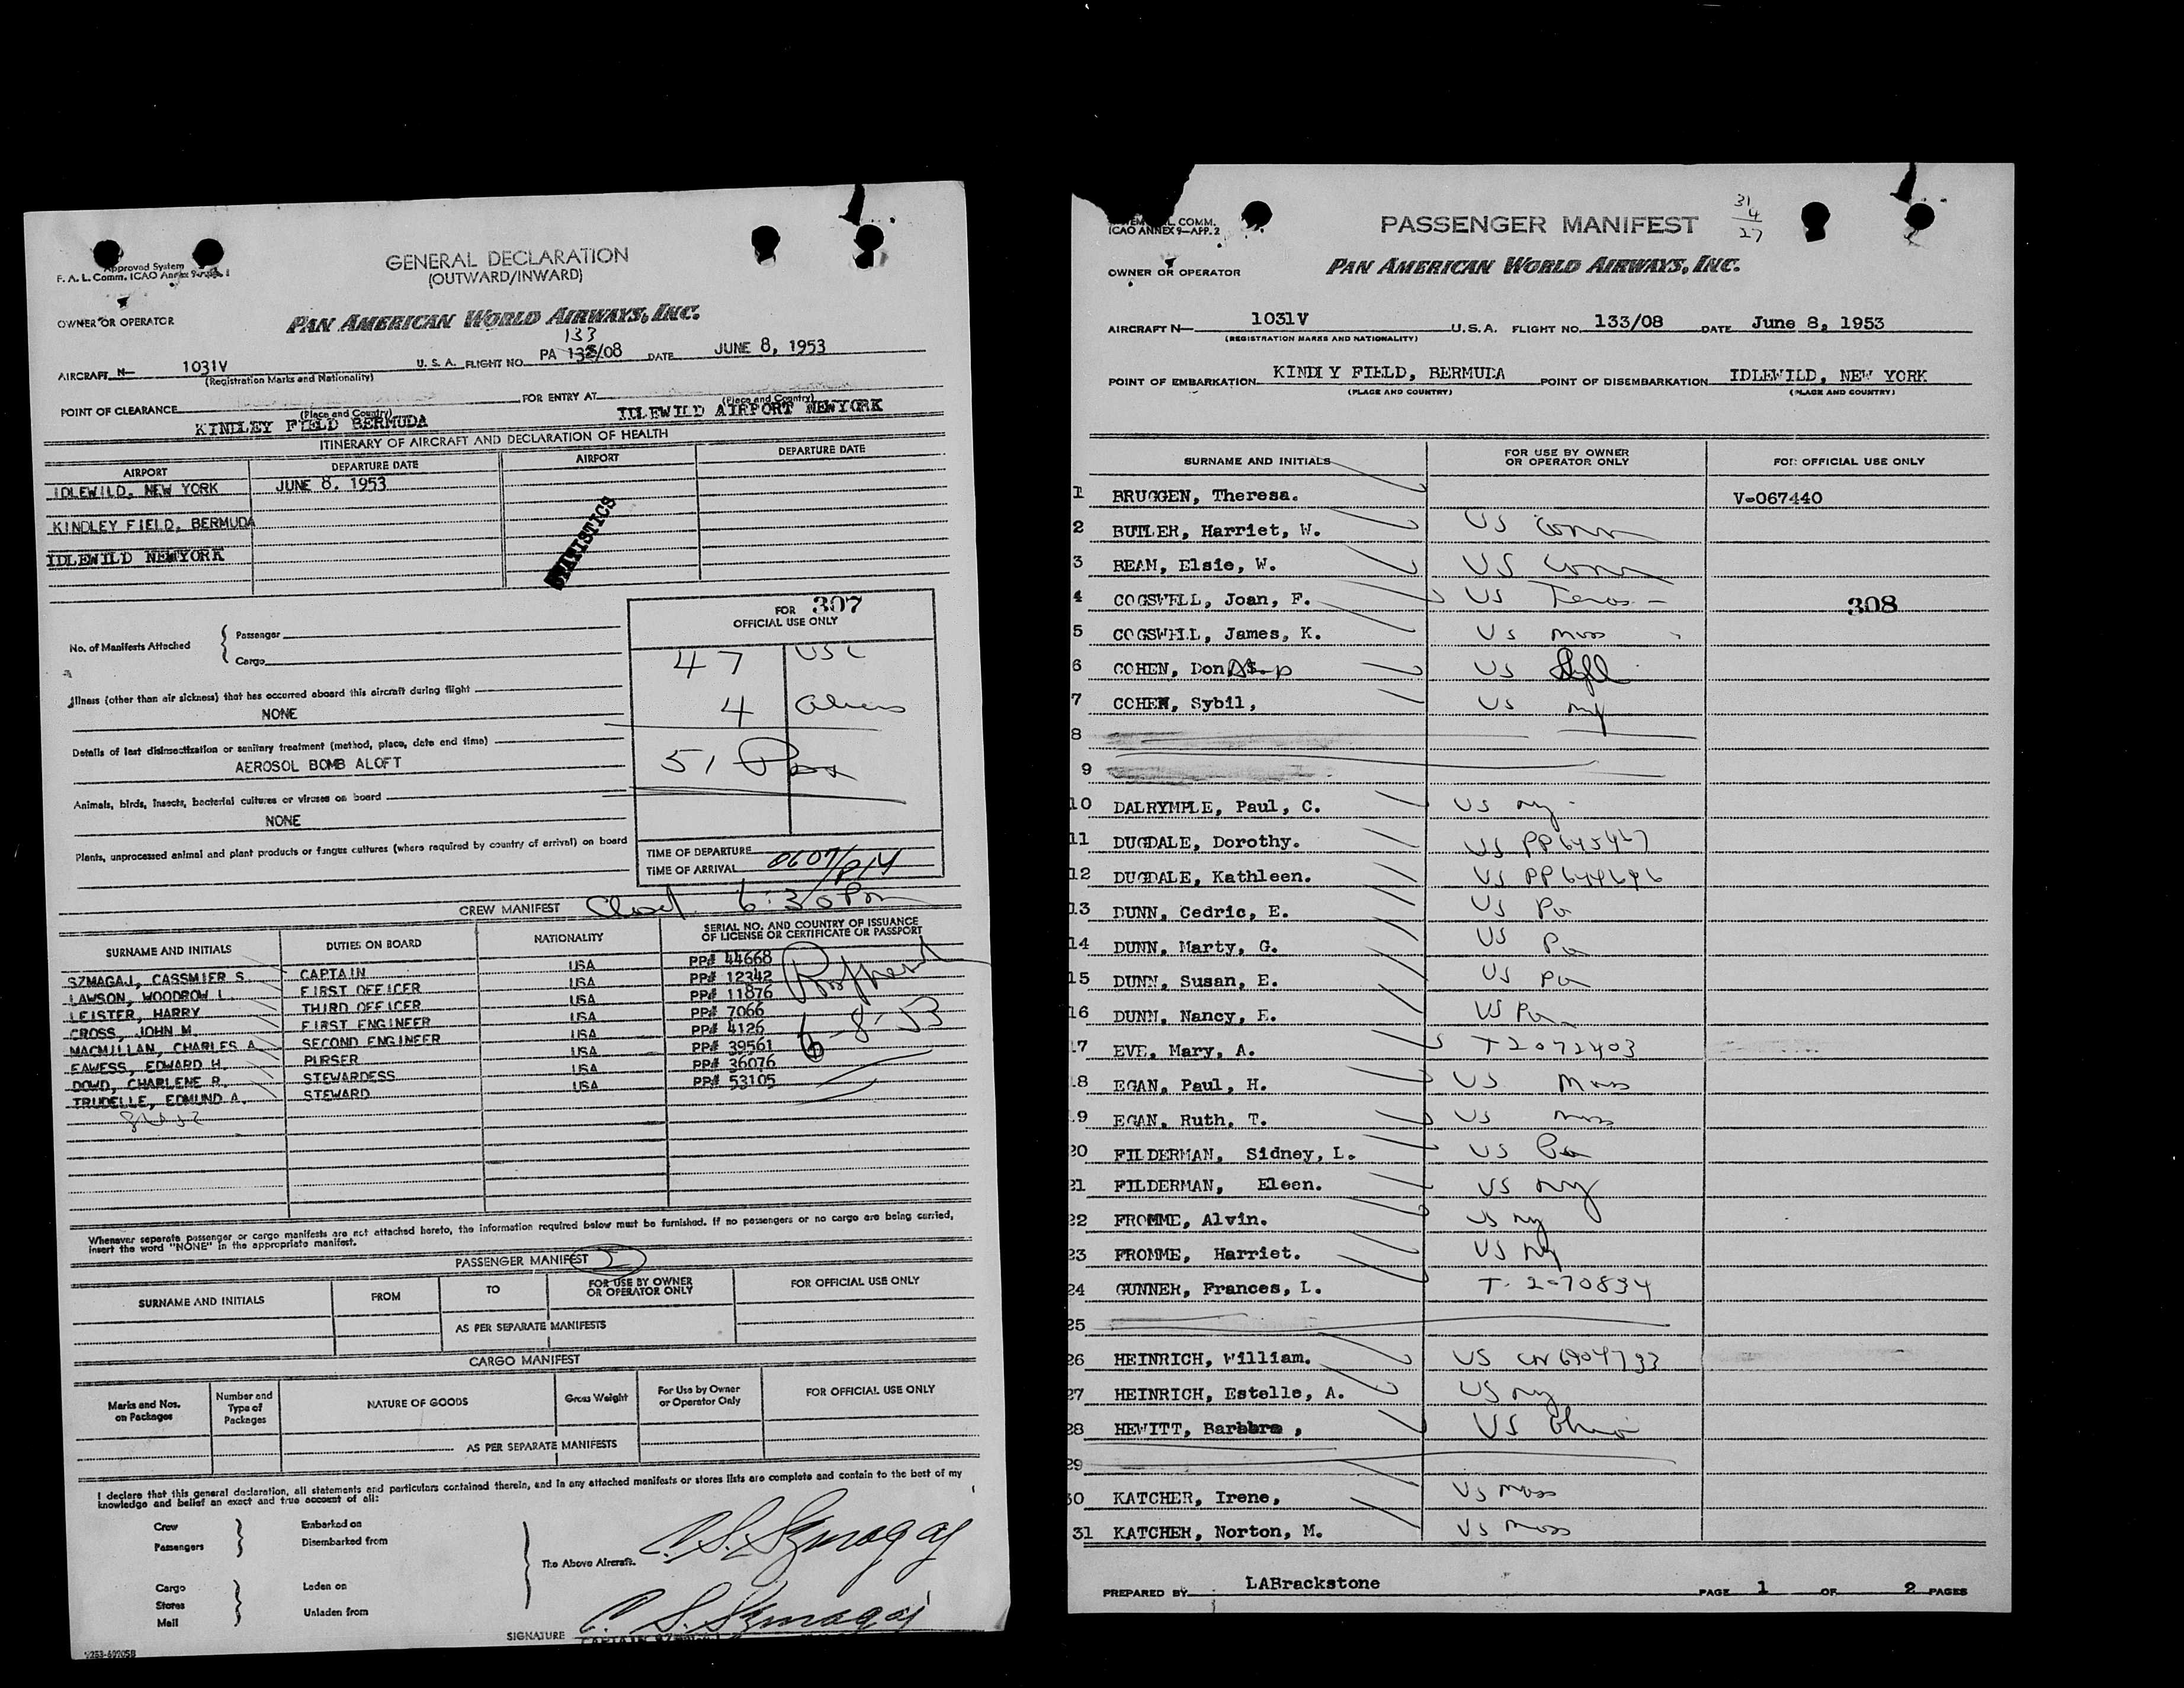 Approved System
F. A. L. Comm. ICAO Annex 9-App. 1
GENERAL DECLARATION
(OUTWARD/INWARD)
OWNER OR OPERATOR
PAN AMERICAN WORLD AIRWAYS, INC.
133
AIRCRAFT N- 1031V U. S. A. FLIGHT NO. PA 132/08 DATE JUNE 8, 1953
(Registration Marks and Nationality)
POINT OF CLEARANCE FOR ENTRY AT
(Place and Country) (Place and Country)
KINDLEY FIELD BERMUDA IDLEWILD AIRPORT NEWYORK
ITINERARY OF AIRCRAFT AND DECLARATION OF HEALTH
AIRPORT DEPARTURE DATE AIRPORT DEPARTURE DATE
IDLEWILD, NEW YORK JUNE 8, 1953
KINDLEY FIELD, BERMUDA
IDLEWILD NEWYORK
STATISTICS
FOR 307
OFFICIAL USE ONLY
No. of Manifests Attached { Passenger
Cargo
47 USC
Illness (other than air sickness) that has occurred aboard this aircraft during flight
NONE
4 Aliens
Details of last disinsectization or sanitary treatment (method, place, date and time)
AEROSOL BOMB ALOFT
51 Pax
Animals, birds, insects, bacterial cultures or viruses on board
NONE
Plants, unprocessed animal and plant products or fungus cultures (where required by country of arrival) on board
TIME OF DEPARTURE
TIME OF ARRIVAL 0607/P14
CREW MANIFEST Closed 6:30 Pm
SURNAME AND INITIALS DUTIES ON BOARD NATIONALITY SERIAL NO. AND COUNTRY OF ISSUANCE
OF LICENSE OR CERTIFICATE OR PASSPORT
SZMAGAJ, CASSMIER S. CAPTAIN USA PP# 44668
LAWSON, WOODROW L. FIRST OFFICER USA PP# 12342
LEISTER, HARRY THIRD OFFICER USA PP# 11876
CROSS, JOHN M. FIRST ENGINEER USA PP# 7066
MACMILLAN, CHARLES A. SECOND ENGINEER USA PP# 4126
EAWESS, EDWARD H. PURSER USA PP# 39561
DOWD, CHARLENE R. STEWARDESS USA PP# 36076
TRUDELLE, EDMUND A. STEWARD USA PP# 53105
6-8-53
Whenever separate passenger or cargo manifests are not attached hereto, the information required below must be furnished. If no passengers or no cargo are being carried,
insert the word "NONE" in the appropriate manifest.
PASSENGER MANIFEST
SURNAME AND INITIALS FROM TO FOR USE BY OWNER
OR OPERATOR ONLY FOR OFFICIAL USE ONLY
AS PER SEPARATE MANIFESTS
CARGO MANIFEST
Marks and Nos.
on Packages Number and
Type of
Packages NATURE OF GOODS Gross Weight For Use by Owner
or Operator Only FOR OFFICIAL USE ONLY
AS PER SEPARATE MANIFESTS
I declare that this general declaration, all statements and particulars contained therein, and in any attached manifests or stores lists are complete and contain to the best of my
knowledge and belief an exact and true account of all:
Crew Embarked on
Passengers Disembarked from
The Above Aircraft. C. S. Szmagaj
Cargo Laden on
Stores
Mail Unladen from
SIGNATURE C. S. Szmagaj
COMM.
ICAO ANNEX 9-APP. 2
PASSENGER MANIFEST
31
4
27
OWNER OR OPERATOR
PAN AMERICAN WORLD AIRWAYS, INC.
AIRCRAFT N- 1031V U.S.A. FLIGHT NO. 133/08 DATE June 8, 1953
(REGISTRATION MARKS AND NATIONALITY)
POINT OF EMBARKATION KINDLY FIELD, BERMUDA POINT OF DISEMBARKATION IDLEWILD, NEW YORK
(PLACE AND COUNTRY) (PLACE AND COUNTRY)
SURNAME AND INITIALS FOR USE BY OWNER
OR OPERATOR ONLY FOR OFFICIAL USE ONLY
1 BRUGGEN, Theresa. V-067440
2 BUTLER, Harriet, W. US Conn
3 BEAM, Elsie, W. US Conn
4 COGSWELL, Joan, F. US Texas 308
5 COGSWELL, James, K. US Mass
6 COHEN, Don US
7 COHEN, Sybil, US NY
8
9
10 DALRYMPLE, Paul, C. US NY
11 DUGDALE, Dorothy. US PP645427
12 DUGDALE, Kathleen. US PP644696
13 DUNN, Cedric, E. US Pa
14 DUNN, Marty, G. US Pa
15 DUNN, Susan, E. US Pa
16 DUNN, Nancy, E. US Pa
17 EVE, Mary, A. T2072403
18 EGAN, Paul, H. US Mass
19 EGAN, Ruth, T. US Mass
20 FILDERMAN, Sidney, L. US Pa
21 FILDERMAN, Eleen. US NY
22 FROMME, Alvin. US NY
23 FROMME, Harriet. US NY
24 GUNNER, Frances, L. T-2070834
25
26 HEINRICH, William. US CN6904793
27 HEINRICH, Estelle, A. US NY
28 HEWITT, Barbara, US Ohio
29
30 KATCHER, Irene, US Mass
31 KATCHER, Norton, M. US Mass
PREPARED BY LABrackstone PAGE 1 OF 2 PAGES